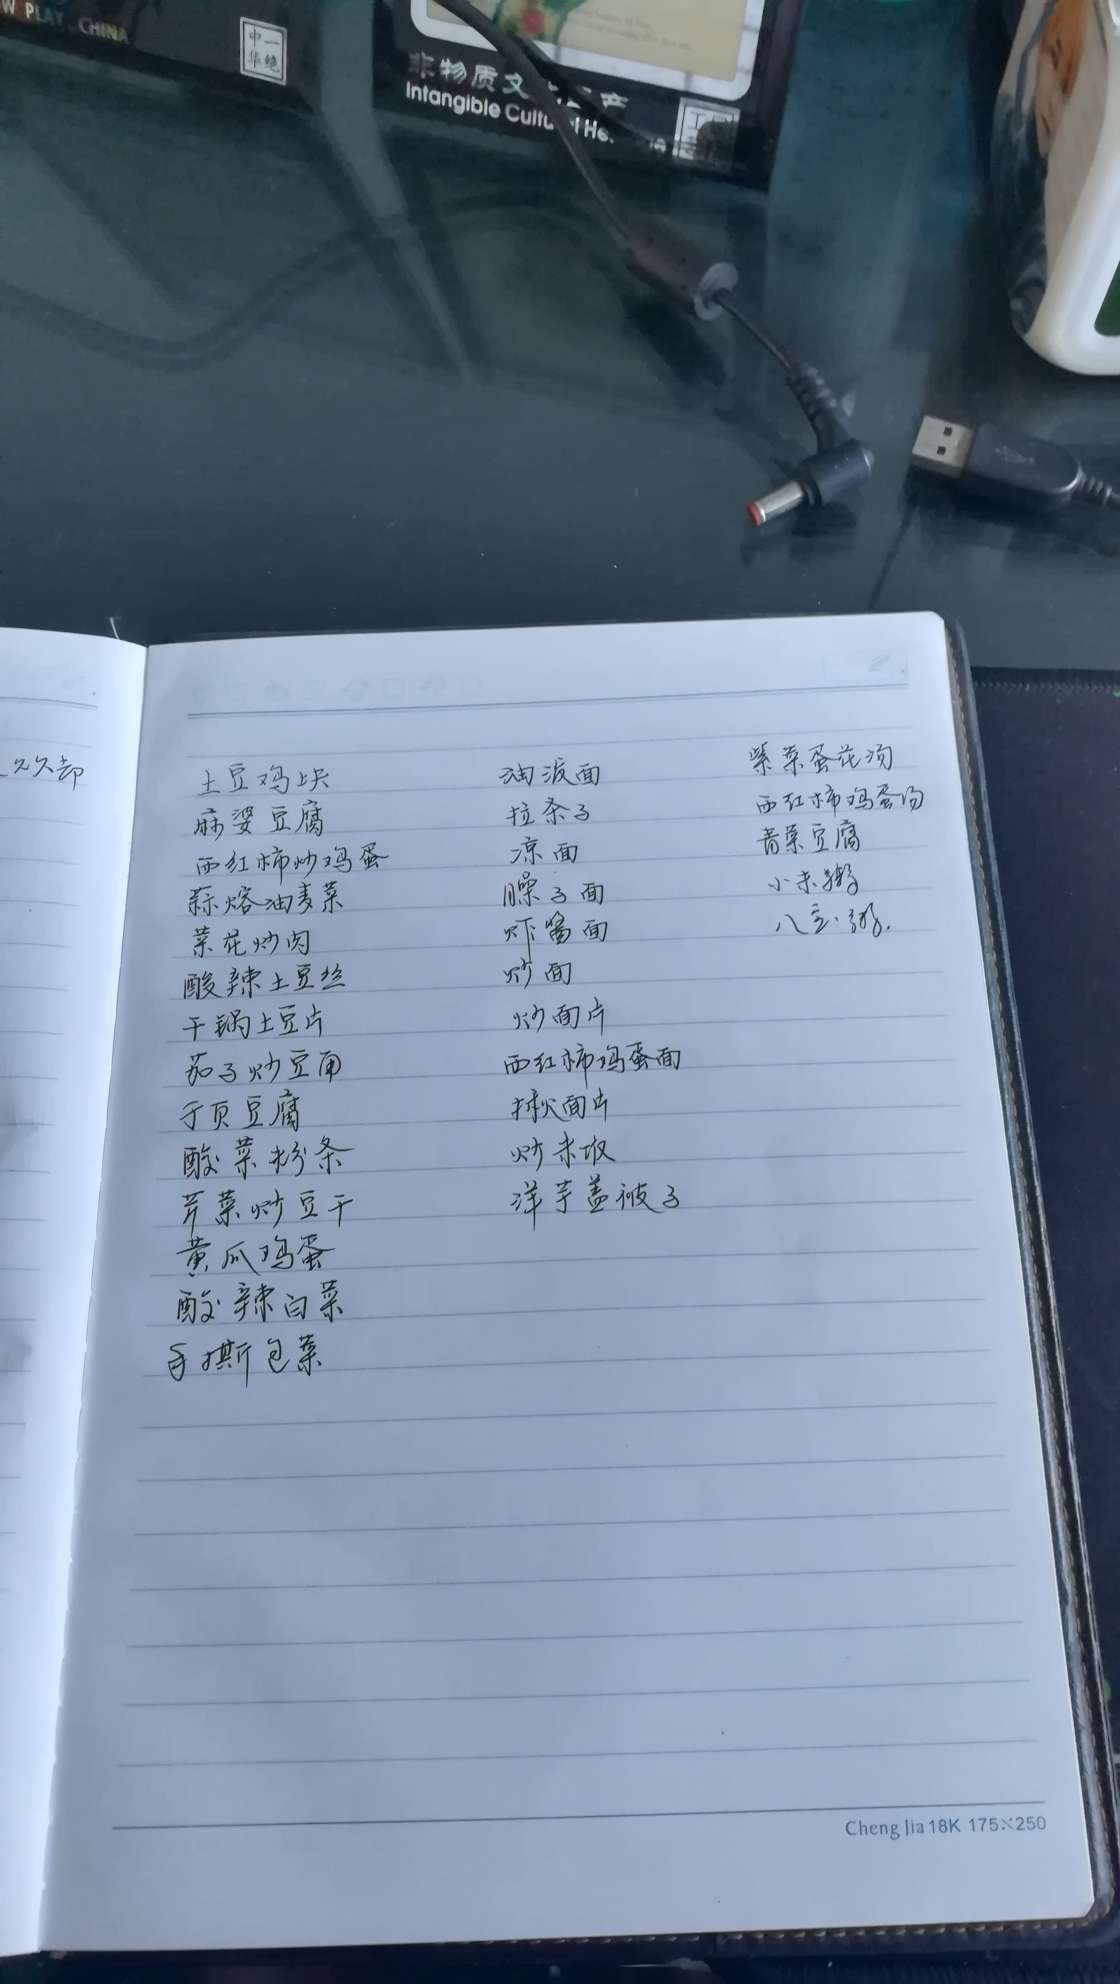 W PLAY . CHINA
中华一绝
非物质文
Intangible Cultu
久久却
土豆鸡块
麻婆豆腐
西红柿炒鸡蛋
蒜熔油麦菜
菜花炒肉
酸辣土豆丝
干锅土豆片
茄子炒豆角
千页豆腐
酸菜粉条
芹菜炒豆干
黄瓜鸡蛋
酸辣白菜
手撕包菜
油泼面
拉条子
凉面
臊子面
炸酱面
炒面
炒面片
西红柿鸡蛋面
揪面片
炒米饭
洋芋盖被子
紫菜蛋花汤
西红柿鸡蛋汤
青菜豆腐
小米粥
八宝粥.
Cheng Jia 18K 175×250